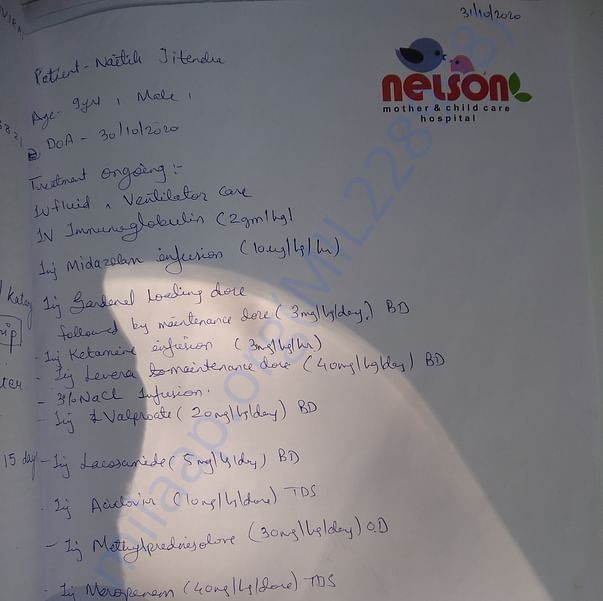 31/10/2020
nelson
mother & child care
hospital
Patient - Naitik Jitendra
Age - 9yrs, Male,
DOA - 30/10/2020
Treatment ongoing :-
IV fluid, Ventilator care
IV Immunoglobulin (2gm/kg)
Inj Midazolam infusion (10ug/kg/hr)
Inj Gardenal Loading dose
followed by maintenance dose (3mg/kg/day) BD
- Inj Ketamine infusion (3mg/kg/hr)
- Inj Levera maintenance dose (40mg/kg/day) BD
- 3% NaCl Infusion.
- Inj Valproate (20mg/kg/day) BD
15 day
- Inj Lacosamide (5mg/kg/day) BD
- Inj Aciclovir (10mg/kg/dose) TDS
- Inj Methylprednisolone (30mg/kg/day) OD
- Inj Meropenem (40mg/kg/dose) TDS